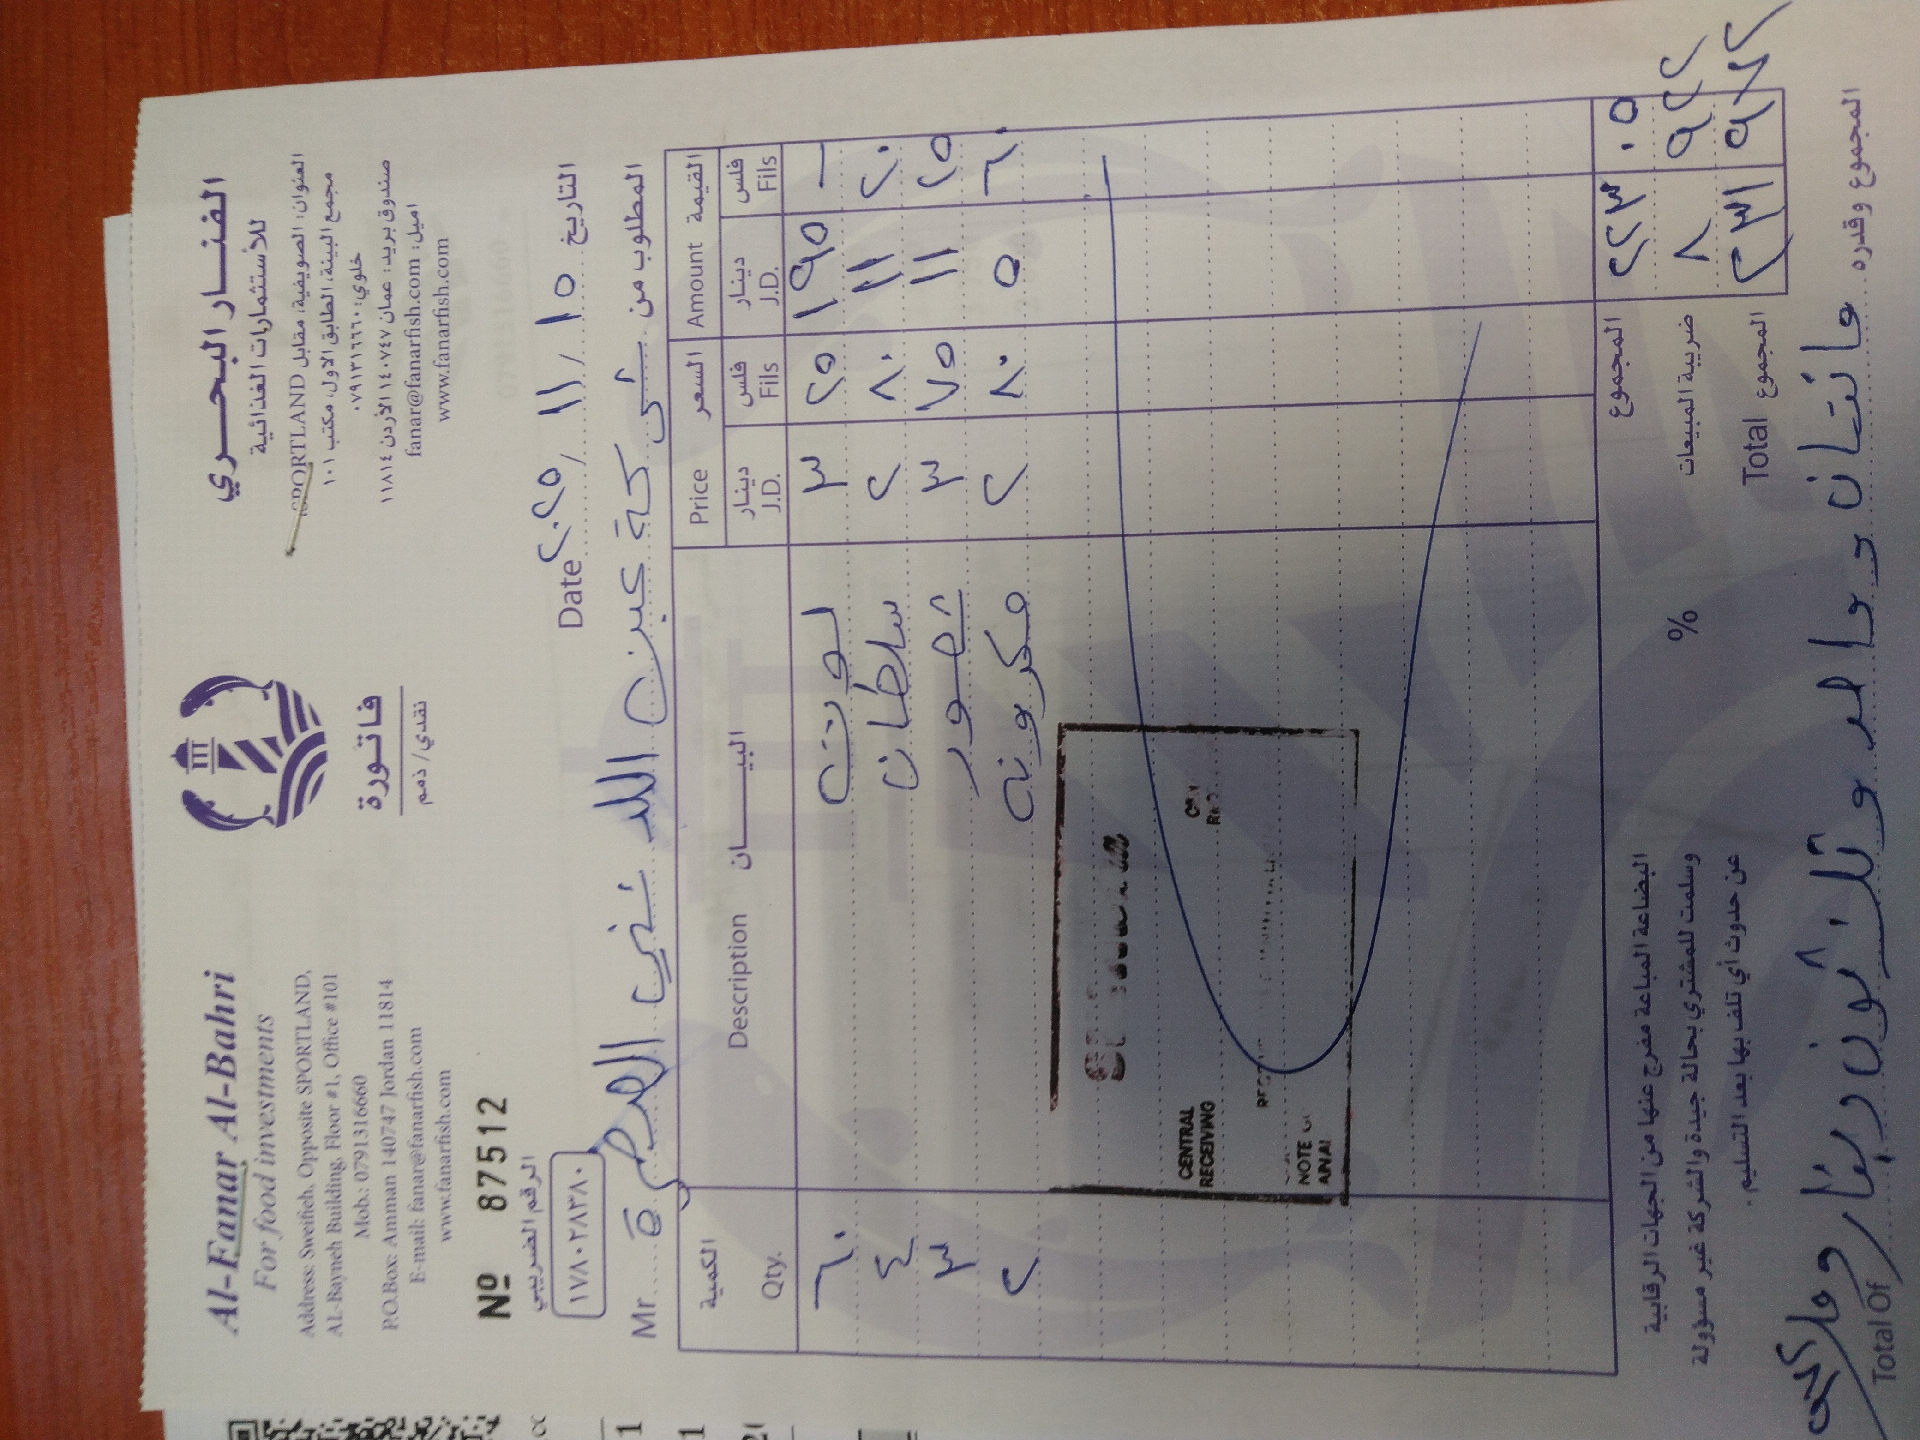 Al-Fanar Al-Bahri
For food investments
Address: Sweifieh, Opposite SPORTLAND,
AL-Bayneh Building, Floor #1, Office #101
Mob.: 0791316660
P.O.Box: Amman 140747 Jordan 11814
E-mail: fanar@fanarfish.com
www.fanarfish.com
الفنار البحري
للأستثمارات الغذائية
العنوان: الصويفية، مقابل SPORTLAND،
مجمع البينة، الطابق الاول، مكتب ١٠١
خلوي: ٠٧٩١٣١٦٦٦٠
صندوق بريد: عمان ١٤٠٧٤٧ الأردن ١١٨١٤
اميل: fanar@fanarfish.com
www.fanarfish.com
فاتورة
نقدي / ذمم
Nº 87512
الرقم الضريبي
١٧٨٠٢٨٣٨٠
Date ٢٠٢٥ / ١١ / ١٥ التاريخ
Mr. المطلوب من
الكمية البيــان السعر Price القيمة Amount
Qty. Description دينار J.D. فلس Fils دينار J.D. فلس Fils
٦٠ ٣ ٢٥ ١٩٥ -
٤ سلطان ٢ ٨٠ ١١ ٢٠
٣ ٣ ٧٥ ١١ ٢٥
٢ مكرونه ٢ ٨٠ ٥ ٦٠
CENTRAL
RECEIVING
المجموع ٢٢٣ ٠٥
% ضريبة المبيعات ٨ ٩٢٢
Total المجموع ٢٣١ ٩٧٢
البضاعة المباعة مفرج عنها من الجهات الرقابية
وسلمت للمشتري بحالة جيدة والشركة غير مسؤولة
عن حدوث أي تلف بها بعد التسليم.
المجموع وقدره مائتان وواحد وثلاثون دينار
Total Of